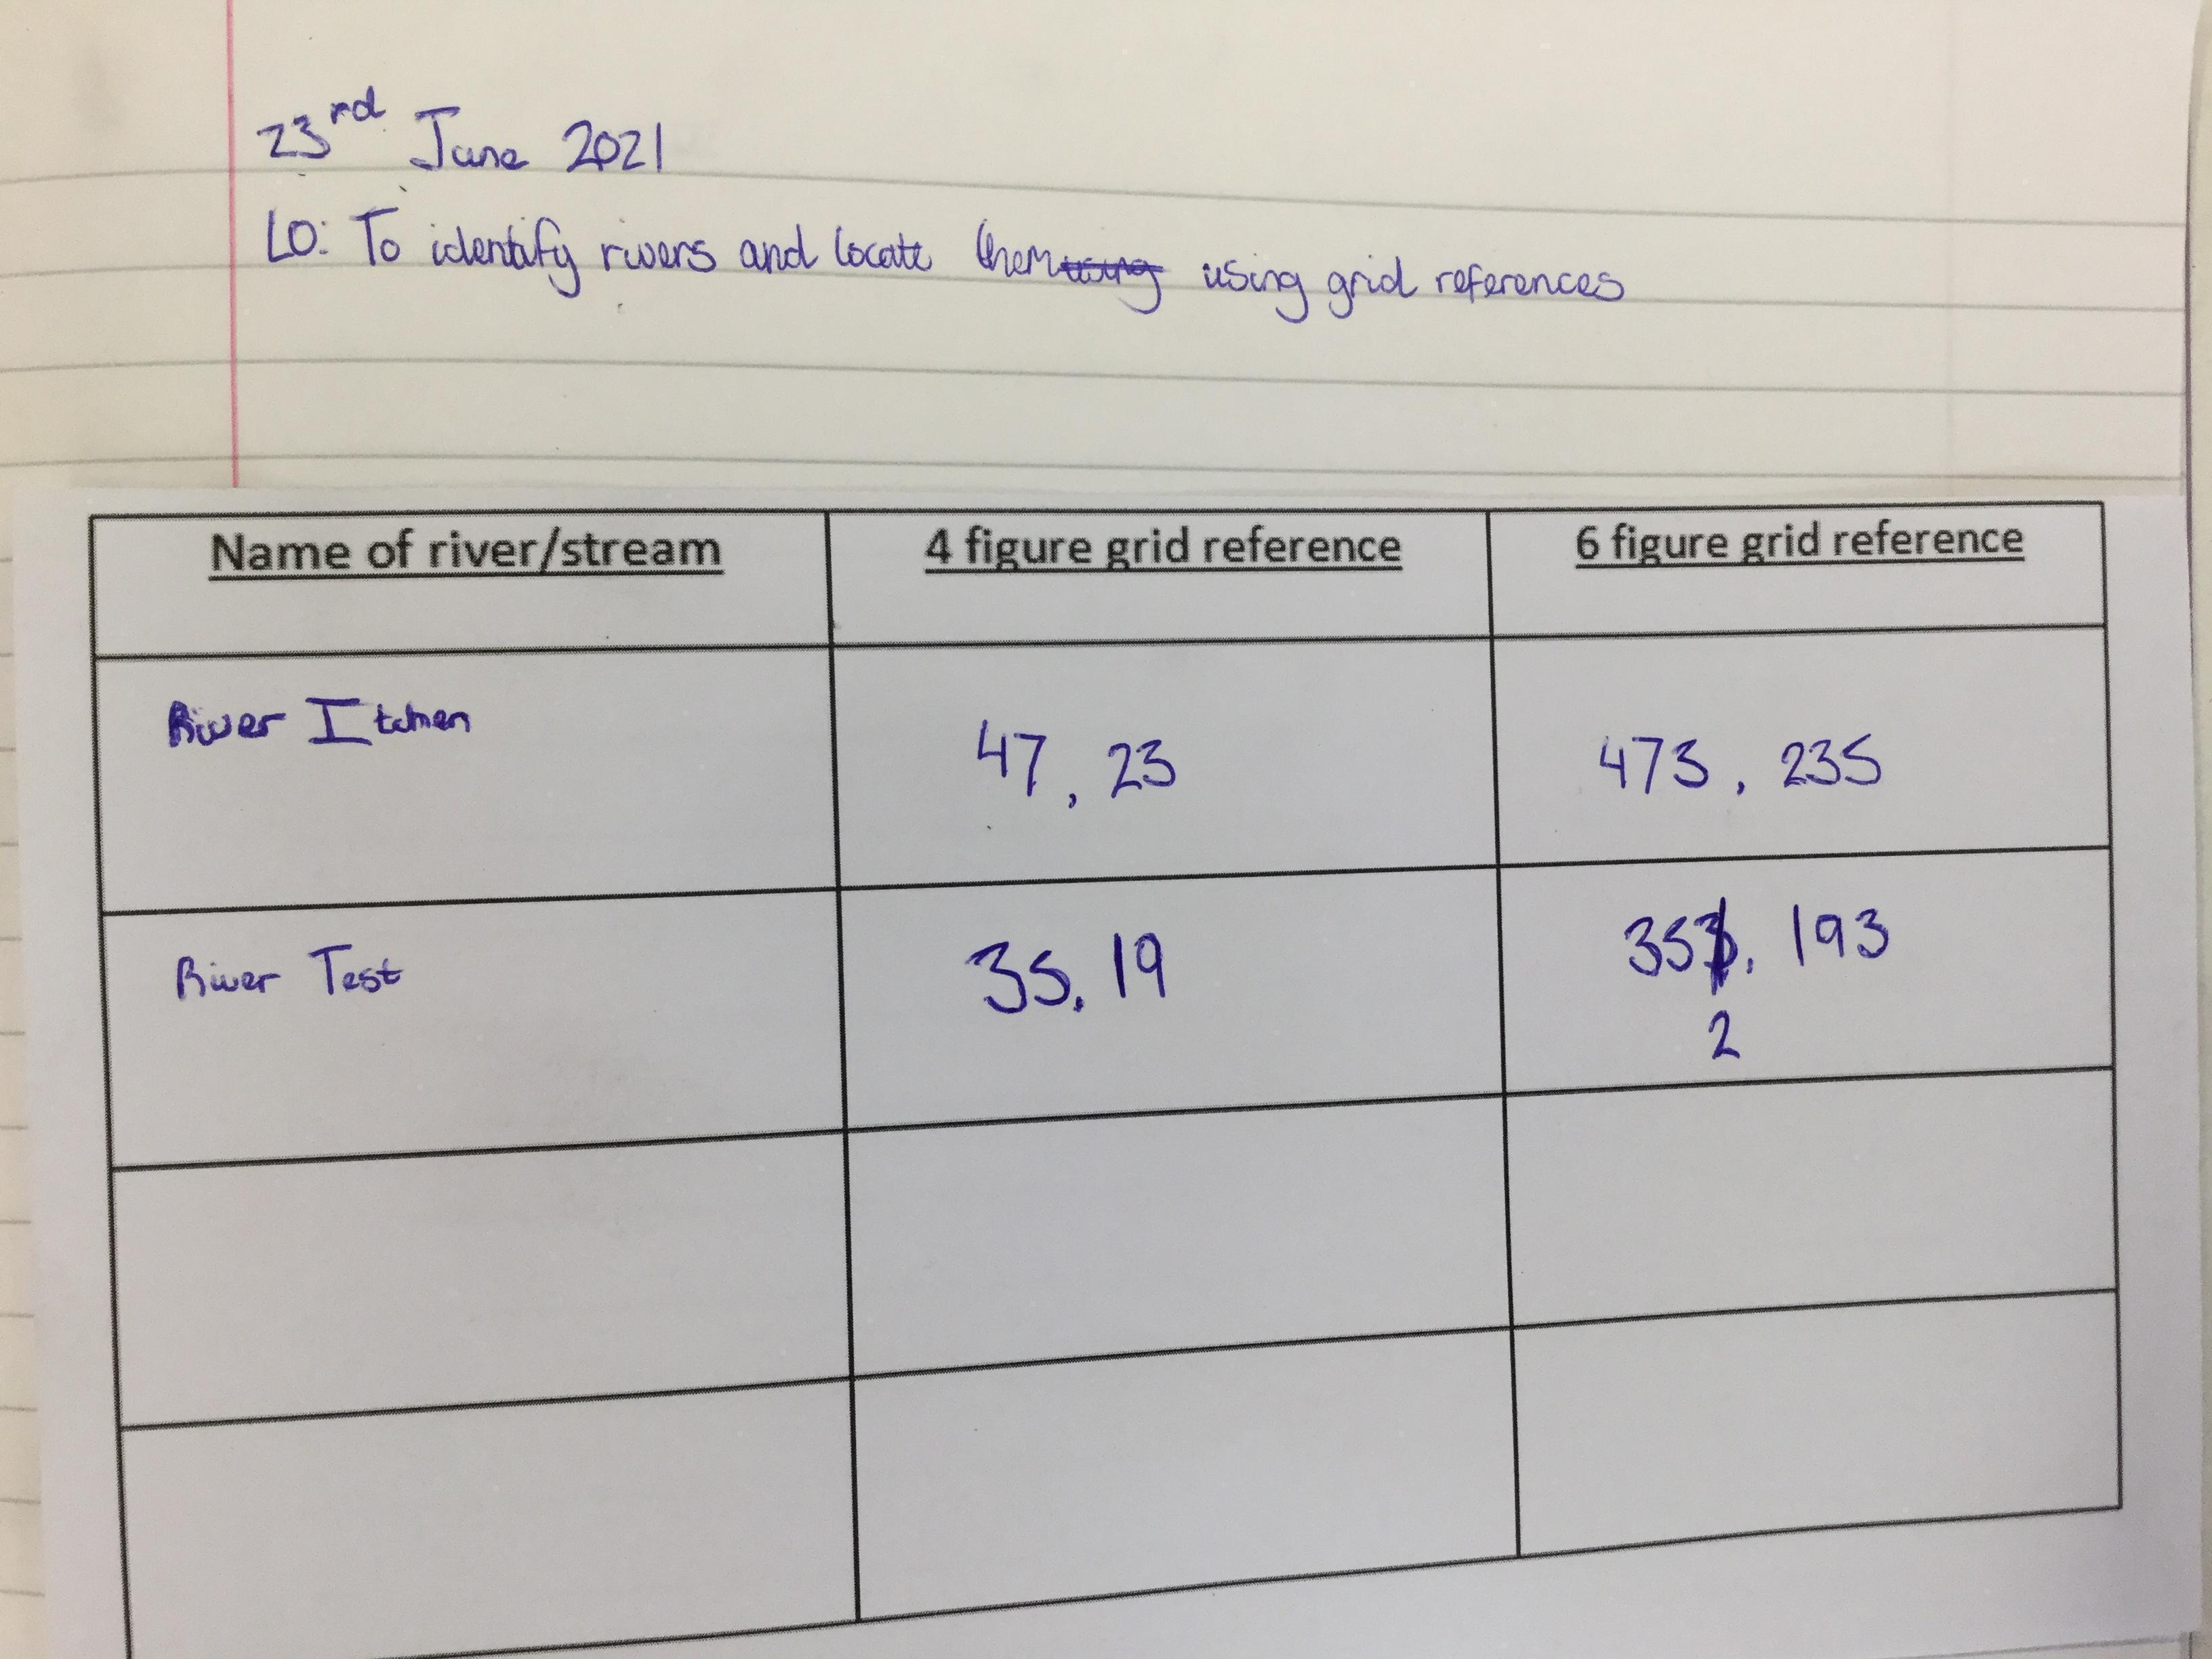 23rd June 2021
LO: To identify rivers and locate them using using grid references
Name of river/stream 4 figure grid reference 6 figure grid reference
River Itchen 47, 23 473, 235
River Test 35, 19 353, 193
2